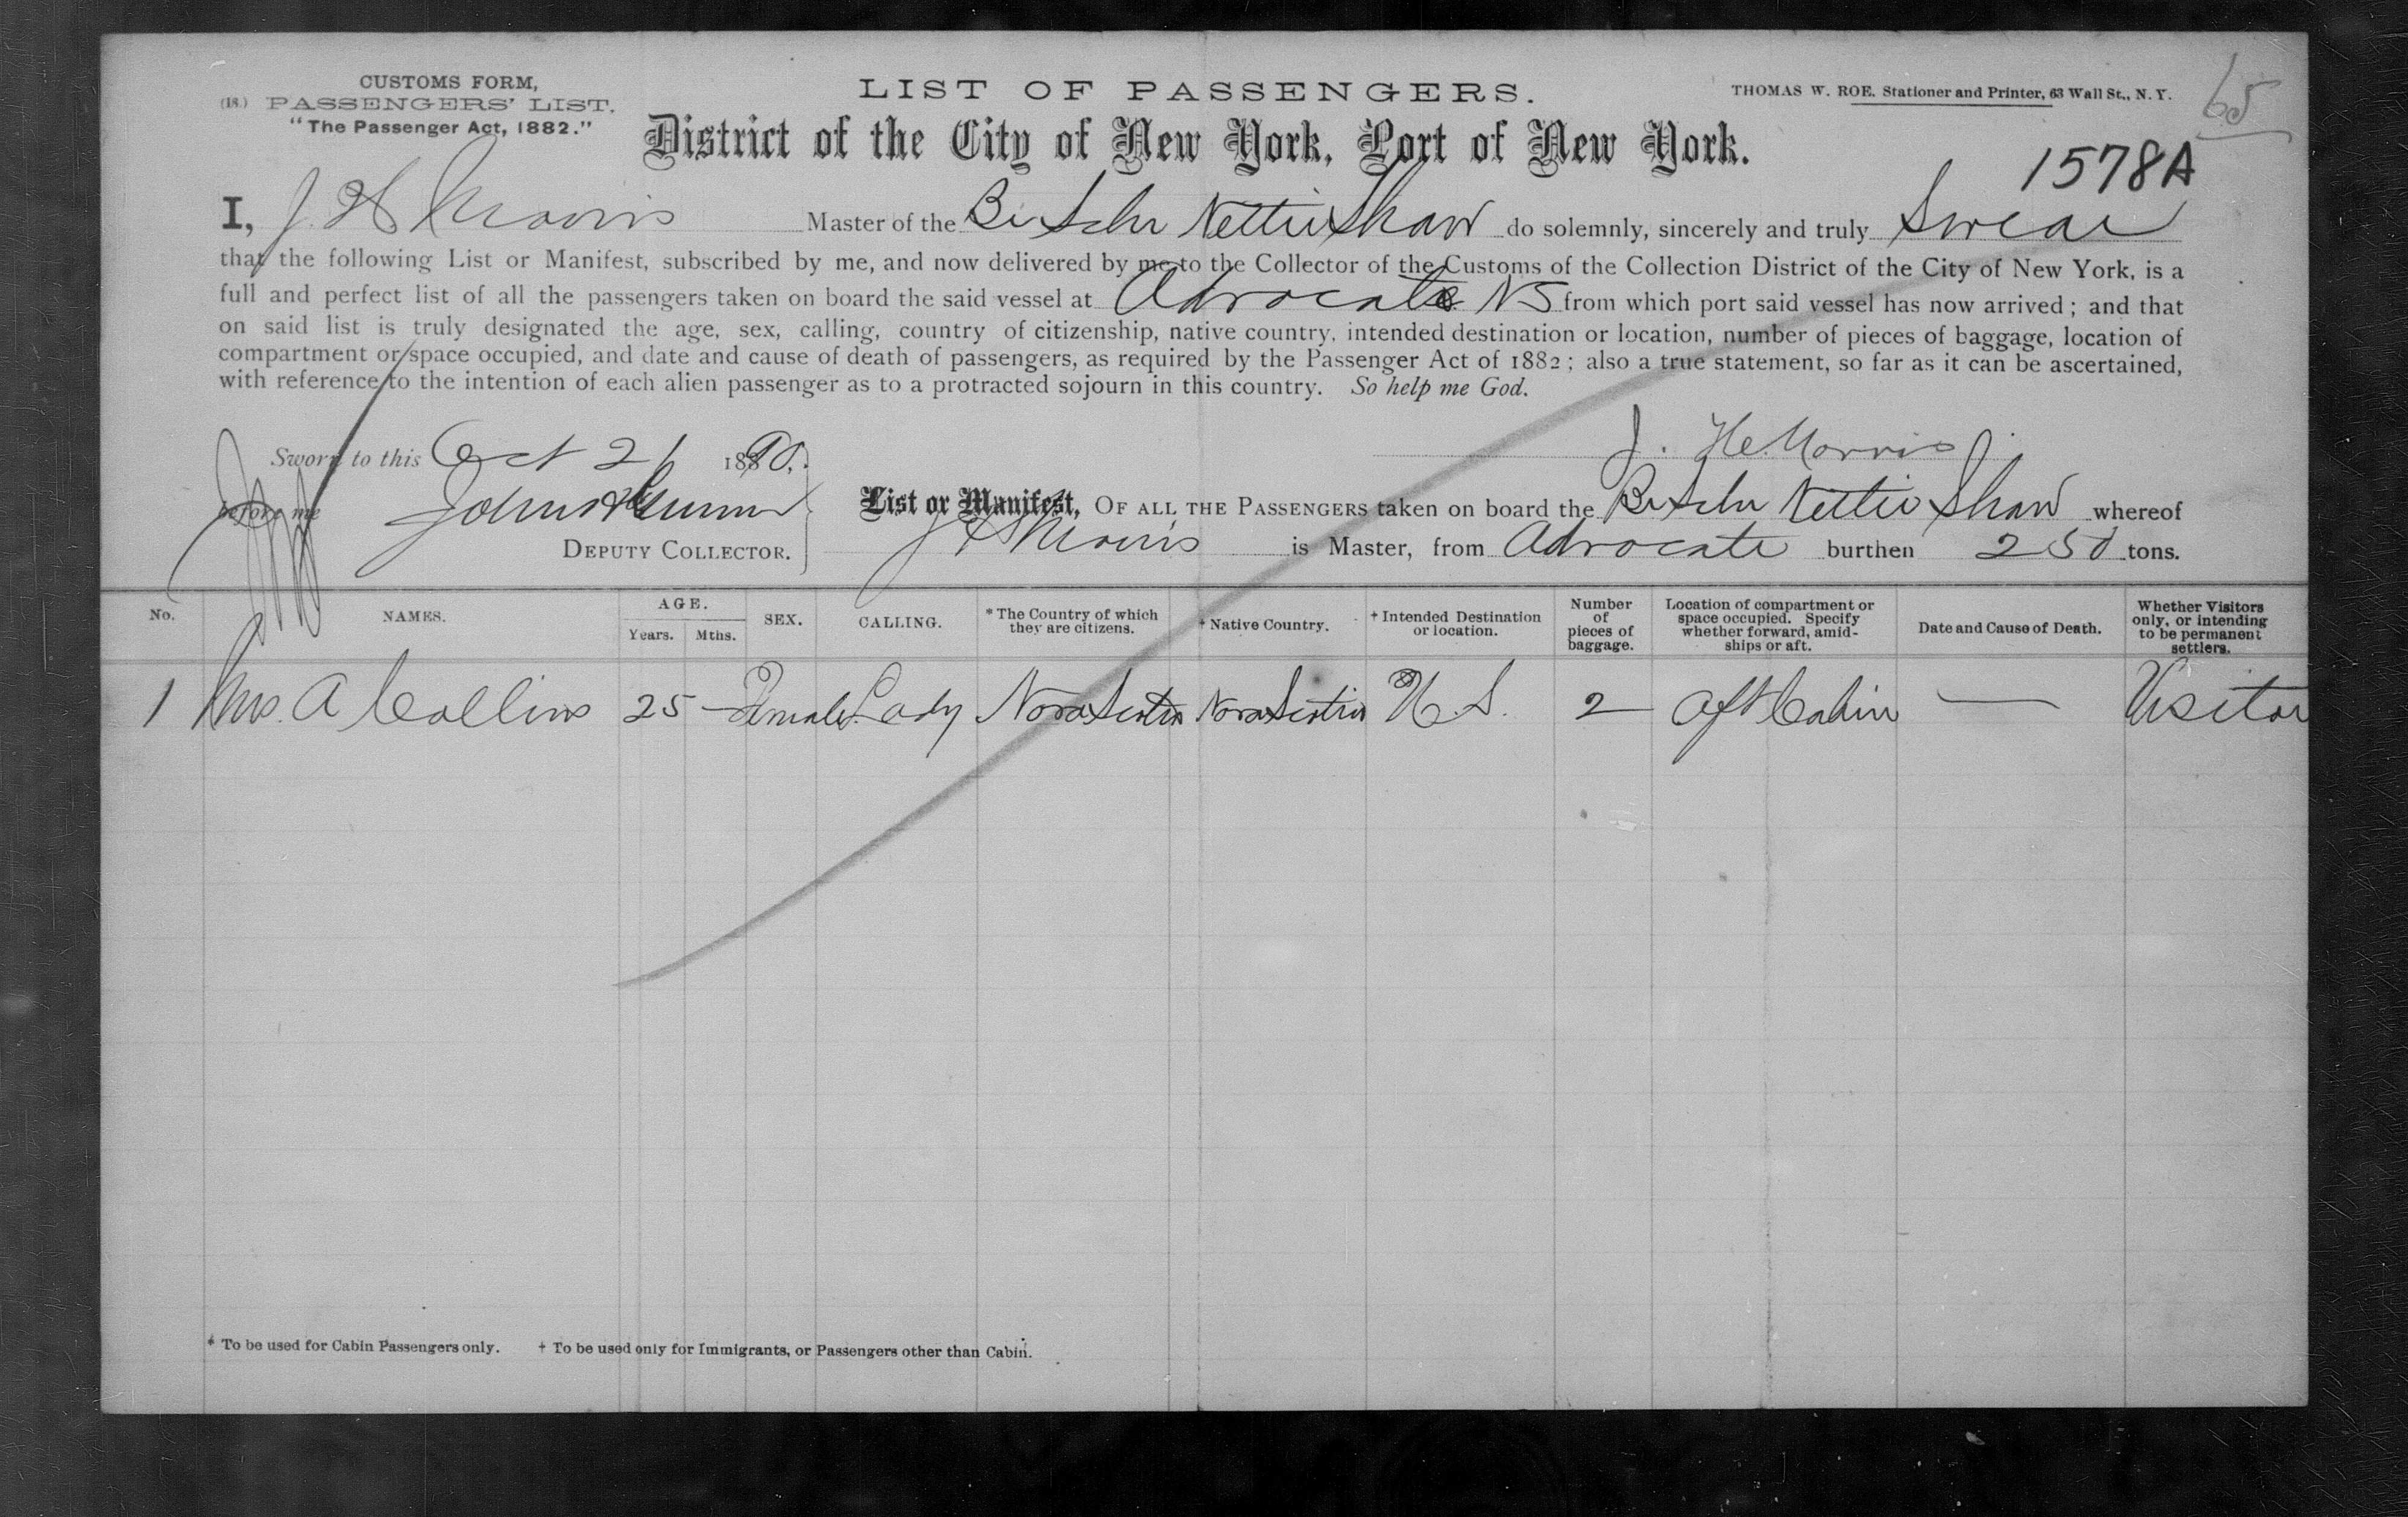 CUSTOMS FORM,
(18.) PASSENGERS' LIST.
"The Passenger Act, 1882."
LIST OF PASSENGERS.
THOMAS W. ROE. Stationer and Printer, 63 Wall St., N. Y.
65
District of the City of New York, Port of New York.
1578A
I, J. H Morris Master of the Br Schr Nettie Shaw do solemnly, sincerely and truly Swear
that the following List or Manifest, subscribed by me, and now delivered by me to the Collector of the Customs of the Collection District of the City of New York, is a
full and perfect list of all the passengers taken on board the said vessel at Advocate NS from which port said vessel has now arrived; and that
on said list is truly designated the age, sex, calling, country of citizenship, native country, intended destination or location, number of pieces of baggage, location of
compartment or space occupied, and date and cause of death of passengers, as required by the Passenger Act of 1882; also a true statement, so far as it can be ascertained,
with reference to the intention of each alien passenger as to a protracted sojourn in this country. So help me God.
Sworn to this Oct 21 1890.
J. H. Morris
before me John
DEPUTY COLLECTOR.
List or Manifest, OF ALL THE PASSENGERS taken on board the Br Schr Nettie Shaw whereof
J H Morris is Master, from Advocate burthen 250 tons.
No. NAMES. AGE. Years. Mths. SEX. CALLING. * The Country of which they are citizens. † Native Country. † Intended Destination or location. Number of pieces of baggage. Location of compartment or space occupied. Specify whether forward, amid-ships or aft. Date and Cause of Death. Whether Visitors only, or intending to be permanent settlers.
1 Mrs. A Collins 25 — Female Lady Nova Scotia Nova Scotia U. S. 2 Aft Cabin — Visitor
* To be used for Cabin Passengers only. † To be used only for Immigrants, or Passengers other than Cabin.